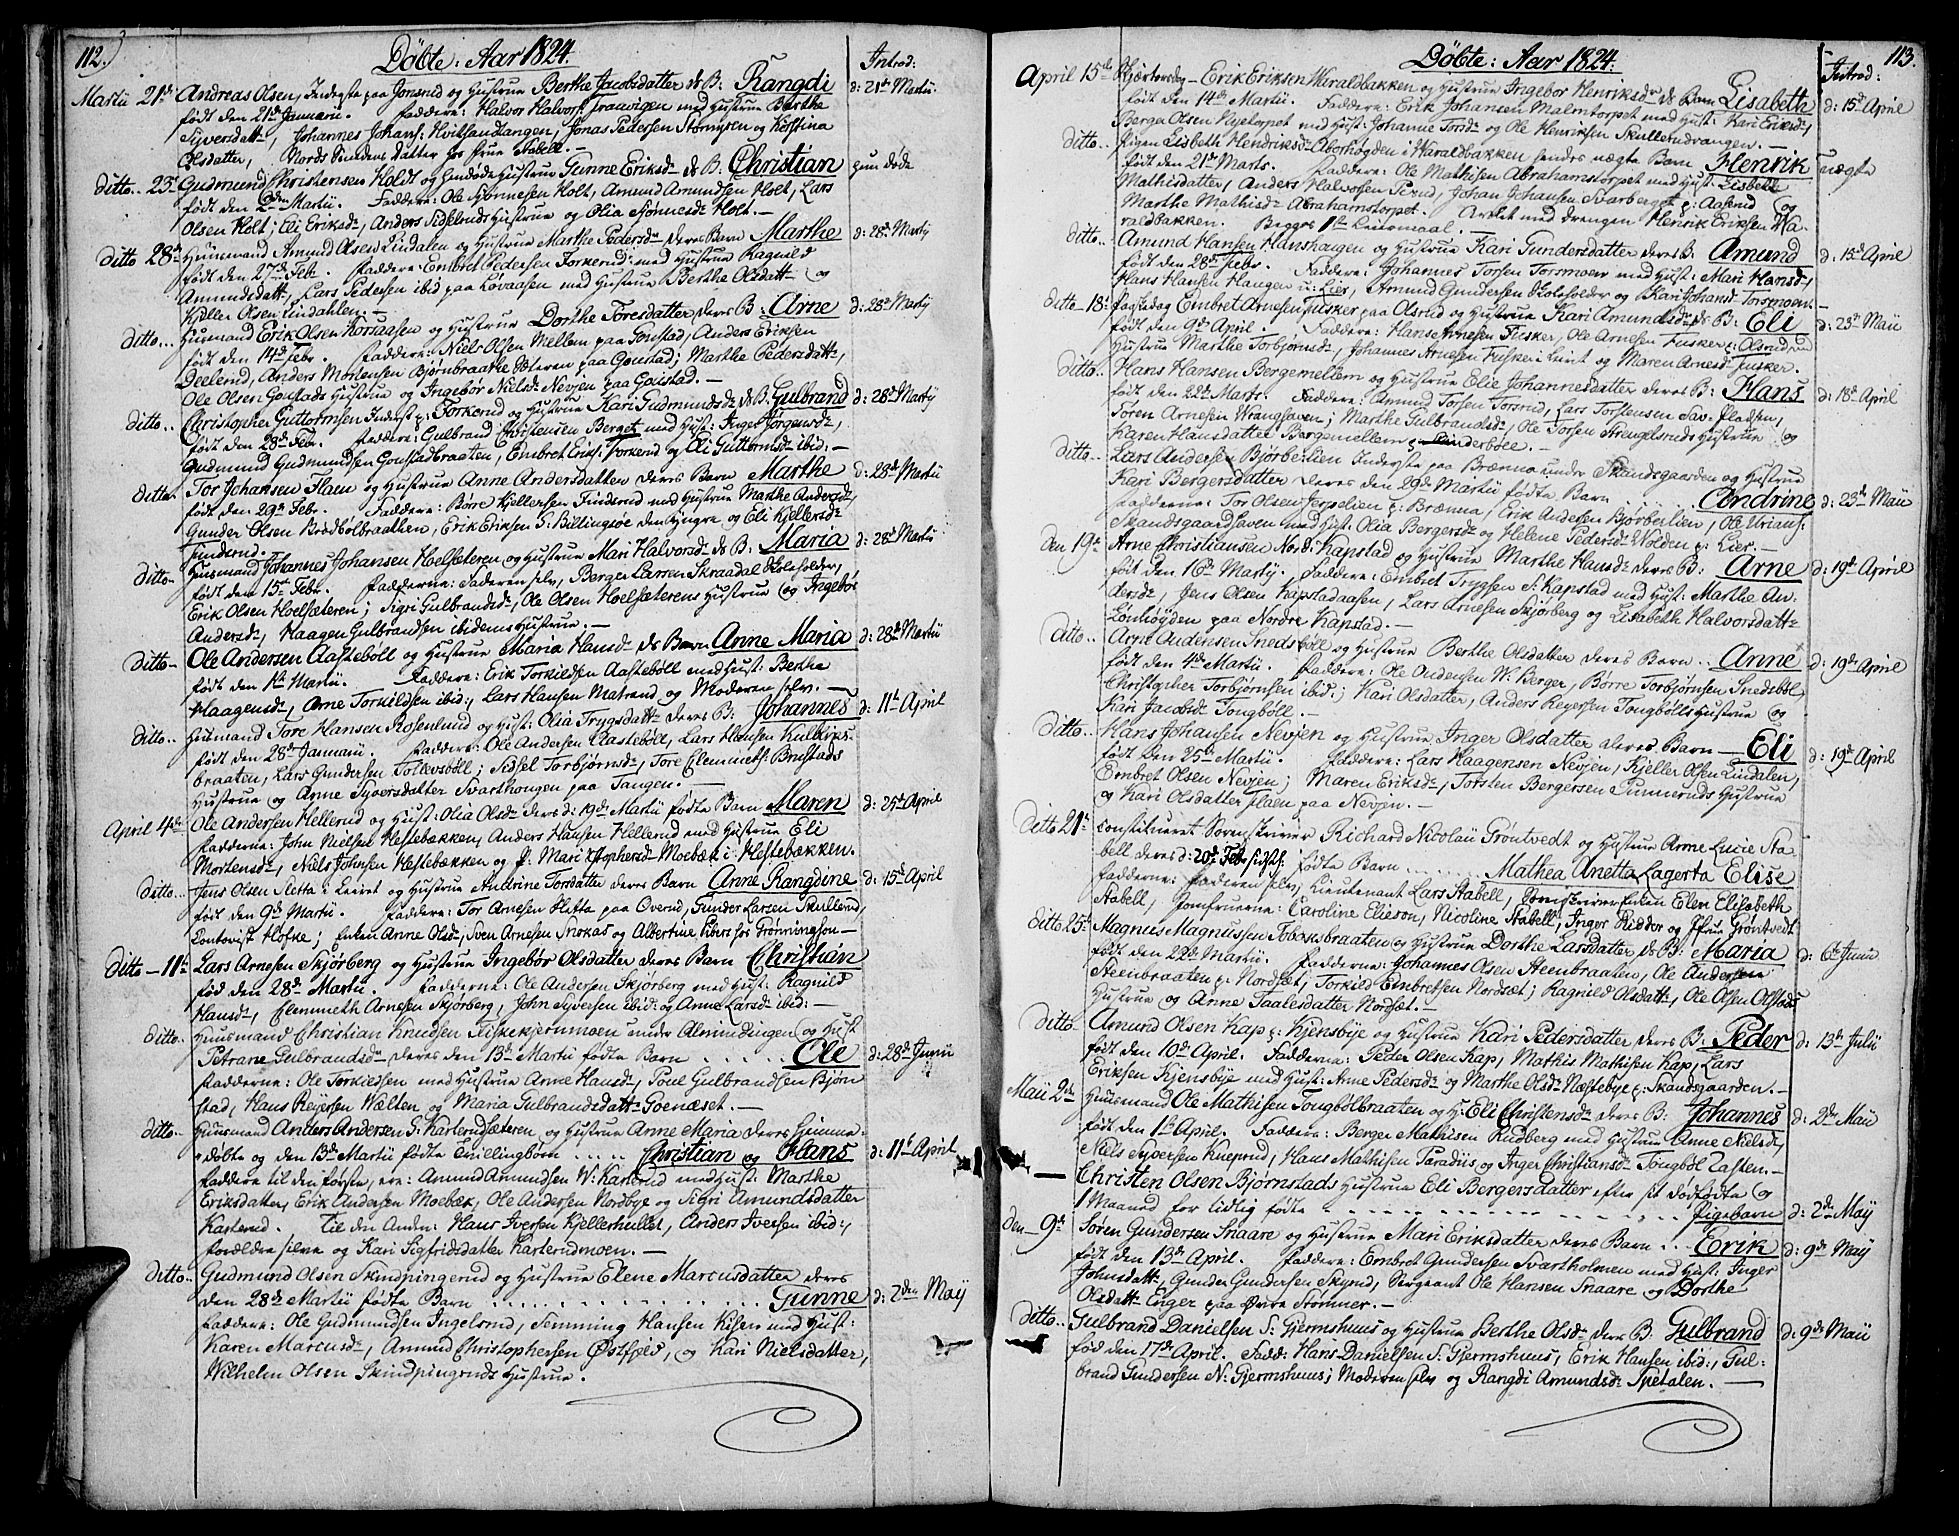 112.)
Döbte: Aar 1824.
Introd:
Martii 21de Andreas Olsen, Inderste paa Jonsrud og Hustrue Berthe Jacobsdatter ds B: Rangdi d: 21de Martii
født den 21de Januarii. Faddere: Halvor Halvors: med Hustrue Berthe
Syversdatt:, Johannes Johans: Hvitsandtangen, Jonas Pedersen Stömysen og Kirstina
Olsdatter, hos Frue Stabell.
ditto 25de Gudmund Christensen Holdt og Hustrue Gunne Eriksdr ds B. Christian
født den 6den Martii. Faddere: Ole Sjønnesen Holt, Amund Amundsen Holt, Lars
Olsen Holt; Eli Eriksdr, Anders Hustrue og Olia Sjønnesdr Holt.
ditto 28de Huusmand Amund Olsen Lindalen og Hustrue Marthe Pedersdr deres Barn Marthe d: 28de Martij
født den 27de Febr. Faddere: Embret Pedersen Torkerud med Hustrue Ragnild
Amundsdatt:, Lars Pedersen ibid: paa Lövaasen med Hustrue Berthe Olsdatt: og
Kjeller Olsen Lindahlen.
ditto.. Huusmand Erik Olsen Korsaasen og Hustrue Dorthe Toresdatter deres B: Arne d: 28de Martij
født den 14de Febr. Faddere: Niels Olsen Mellem paa Goustad, Anders Eriksen
Deelerud, Anders Mortensen Bjørnbraatte Sæteren paa Goustad; Marthe Pedersdatt:,
Ole Olsen Goustads Hustrue og Ingebør Nielsdr Nevjen paa Goustad.
ditto.. Christopher Guttormsen Inderst p: Torkerud og Hustrue Kari Gudmundsdr ds B. Gulbrand d: 28de Martij
født den 28de Febr. Faddere: Gulbrand Christensen Berget med Hust: Inger Jörgensdr,
Gudmund Gudmundsen Goustadbraaten, Embret Eriks: Torkerud og Eli Guttormsdr ibid:
ditto. Tor Johansen Flaen og Hustrue Anne Andersdatter deres Barn Marthe d: 28de Martii
født den 29de Febr. Faddere: Børe Kjellersen Finderud med Hustrue Marthe Andersdr,
Gunder Olsen Bredbolbraathen, Erik Eriksen S: Billingsøe den Yngre og Eli Kjellersdr
Finderud.
ditto Huusmand Johannes Johansen Hoelsæteren og Hustrue Mari Halvorsdr ds B: Maria d: 28de Martii
født den 15de Febr. Fadderne: Faderen selv, Berger Larsen Skraadal Skoleholder,
Erik Olsen Hoelsæteren; Sigri Gulbrandsdr, Ole Olsen Hoelsæterens Hustrue og Ingebør
Andersdr, Haagen Gulbrandsen ibidems Hustrue.
ditto Ole Andersen Aasteböll og Hustrue Maria Hansdr ds Barn Anne Maria d: 28de Martii
født den 1te Martii. Faddere: Erik Torkildsen Aasteböll med Hust: Berthe
Haagensdr, Arne Torkildsen ibid:, Lars Hansen Matrand og Moderen selv.
ditto.. Huusmand Tore Hansen Rosenlund og Hust: Olia Trygsdatt: deres B: Johannes d: 11te April
født den 28de Januarii. Faddere: Ole Andersen Aasteböll, Lars Hansen Kulblips-
braaten, Lars Gundersen Tollevsböll; Sidsel Torbjörnsdr, Tore Clemmets: Brustads
Hustrue og Anne Syversdatter Svarthougen paa Tangen.
April 4de Ole Andersen Hellerud og Hust: Olia Olsdr deres d: 19de Martii fødte Barn Maren d: 25de April
Faddere: John Nielsen Hestebækken, Anders Hansen Hellerud med Hustrue Eli
Mortensdr, Niels Johnsen Hestebækken og P: Mari Moebæk i Hestebækken.
ditto.. Jens Olsen Sletta i Leiret og Hustrue Andrine Torsdatter deres Barn Anne Rangdine d: 15de April
født den 9de Martii. Faddere: Tor Arnesen Sletta paa Overud, Gunder Larsen Skullerud,
Contorist Höfke; Enken Anne Olsdr, Sven Arnesen Snokas og Albertine Ebers hos Grönningson
Ditto 11te Lars Arnesen Skjörberg og Hustrue Ingebör Olsdatter deres Barn Christian
fød den 28de Martii. Faddere: Ole Andersen Skjörberg med Hust: Ragnild
Hansdr, Clemmeth Arnesen Skjörberg, John Syversen ibid: og Anne Larsdr ibid:
ditto.. Huusmand Christian Knudsen Fiskekjernmoen under og Hust
Petrane Gulbrandsdr deres den 13de Martii fødte Barn ..... Ole d: 28de Junii
Fadderne: Ole Torkildsen med Hustrue Anne Hansdr, Poul Gulbrandsen Bjørn
stad, Hans Reyersen Wælten og Maria Gulbrandsdatt: Goenæset.
ditto.. Huusmand Anders Andersen S: Karterudsæteren og Hustrue Anne Maria deres hiemme-
döbte og den 13de Martii fødte Tvillingbörn ..... Christian og Hans d: 11te April
Faddere til den første, ere: Amund Amundsen W: Karterud med Hust: Marthe
Eriksdatter, Erik Andersen Moebæk, Ole Andersen Nordbye og Sigri Amundsdatter
Karterud. Til den Anden: Hans Iversen Kjellerhullet, Anders Iversen ibid:,
Forældre selve og Kari Sigfridsdatter Karterudmoen.
ditto.. Gudmund Olsen Skindpingerud og Hustrue Elene Marcusdatter deres
den 28de Martii fødte Barn ............ Gunne d: 2den May
Faddere: Ole Gudmundsen Ingelsrud, Flemming Hansen Kisen med Hust:
Karen Marcusdr, Amund Christophersen Østfjeld, og Kari Nielsdatter,
Wilhelm Olsen Skindpingruds Hustrue.
113.
Döbte: Aar 1824.
Introd:
April 15de Skjærtorsdag – Erik Eriksen Waraldbakken og Hustrue Ingebor Henriksdr ds Barn Lisabeth d: 15de April
født den 14de Martii. Faddere: Erik Johansen Malmtorpet med Hust: Kari Eriksdr,
Berger Olsen Nyetorpet med Hust: Johanne Torsdr og Ole Henriksen Skullerudvangen.
ditto.. Pigen Lisbeth Hendriksdr Aborhögden i Waraldbakken hendes uægte Barn Henrik uægte
født den 21de Marts. Faddere: Ole Mathisen Abrahamstorpet med Hust: Lisbeth
Mathisdatter, Anders Halvorsen Perud, Johan Johansen Svarberget p: Aaserud og
Marthe Mathisdr Abrahamstorpet. Avlet med drengen Henrik Eriksen Wa-
raldbakken. Begges 1te Leiermaal.
ditto.. Amund Hansen Hanshaugen og Hustrue Kari Gundersdatter deres B: Amund d: 15de April
født den 28de Febr. Faddere: Johannes Torsen Torsmoen med Hust: Mari Hansdr,
Hans Hansen Haugen u: Lier, Amund Gundersen Skoleholder og Kari Johansdr Torsmoen.
ditto 18de Paaskedag Embret Arnesen Fusker paa Olsrud og Hustrue Kari Amundsdr ds B: Eli d: 23de Maii
født den 9de April. Faddere: Hans Arnesen Fusker, Ole Arnesen Fusker p: Olsrud med
Hustrue Marthe Torbjörnsdr, Johannes Arnesen Fusker i Leiret og Maren Arnesdr Fusker.
ditto.. Hans Hansen Bergemellem og Hustrue Elie Johannesdatter deres B: Hans d: 18de April
født den 22de Marts. Faddere: Amund Torsen Torsrud, Lars Torstensen Sav-Pladsen,
Soren Arnesen Vranghaven; Marthe Gulbrandsdr, Ole Torsen Strengelsruds Hustrue og
Karen Hansdatter Bergemellem p: Linderböle.
ditto.. Lars Andersen Bjørberlien Inderste paa Brænna under Skandsgaarden og Hustrue
Kari Bergersdatter deres den 29de Martii fødte Barn ...... Andrine d: 23de Maii
Fadderne: Tor Olsen Jerpelien p: Brænna, Erik Andersen Bjørberlien, Ole Urians:
Skandsgaardshaven med Hust: Olia Bergersdr og Helene Pedersdr Wolden p: Lier.
den 19de Arne Christiansen Nord: Kapstad og Hustrue Marthe Hansdr deres B: Arne d: 19de April
föt den 16de Martij. Faddere: Embret Trygsen S: Kapstad med Hust: Marthe An-
dersdr, Jens Olsen Kapstadaasen, Lars Arnesen Skjörberg og Lisabeth Halvorsdatt:
Lönhögden paa Nordre Kapstad.
ditto.. Arne Audensen Snedsböll og Hustrue Berthe Olsdatter deres Barn .. Anne d: 19de April
født den 4de Martii. Faddere: Ole Audensen W: Berger, Börre Torbjörnsen Snedsböl,
Christopher Torbjörnsen ibid:; Kari Olsdatter, Anders Reyersen Tongbölls Hustrue og
Kari Jacobsdr Tongböll.
ditto.. Hans Johansen Nevjen og Hustrue Inger Olsdatter deres Barn — Eli d: 19de April
født den 25de Martii. Faddere: Lars Haagensen Nevjen, Kjeller Olsen Lindalen,
Embret Olsen Nevjen; Maren Eriksdr, Torsten Bergersen Tinneruds Hustrue
og Kari Olsdatter Flaen paa Nevjen.
Ditto 21de Constitueret Sorenskriver Richard Nicolaii Gröntvedt og Hustrue Anne Lucie Sta-
bell deres d: 20de Febr: sidstl: fødte Barn ...... Mathea Anetta Lagerta Elise
Fadderne: Faderen selv, Lieutenant Lars Stabell, Elen Elisabeth
Stabell, Jomfruerne: Caroline Elieson, Nicoline Stabell, Inger Ridder og Frue Gröntvedt
ditto 25de Magnus Magnussen Tobaksbraaten og Hustrue Dorthe Larsdatter, ds B: Maria d: 6te Junii
født den 22de Martii. Fadderne: Johannes Olsen Steenbraaten, Ole Andersen
Steenbraaten p: Nordset, Torkild Embretsen Nordsæt; Ragnild Olsdatt:, Ole Olsen Olstads
Hustrue og Anne Taalesdatter Nordset.
ditto Amund Olsen Kap p: Kjensbye og Hustrue Kari Pedersdatter deres B: Peder d: 13de Julii
født den 10de April. Fadderne: Peder Olsen Kap, Mathis Mathisen Kap, Lars
Eriksen Kjensbye med Hust: Anne Pedersdr og Marthe Olsdr Næstebye p: Skandsgaarden.
Maii 2de Huusmand Ole Mathisen Tongbölbraaten og H: Eli Christensdr deres B: Johannes d: 2de Maii
født den 1te April. Faddere: Berger Mathisen Rudberg med Hustrue Anne Nielsdr,
Niels Syversen Kneprud, Hans Mathisen Paradiis og Inger Christiansdr Tongböl Tasten.
— Christen Olsen Bjørnstads Hustrue Eli Bergersdatter efter sit dödfødte og
1 Maaned for tidlig fødte ........ Pigebarn d: 2de Maij
den 9de Soren Gundersen Snaare og Hustrue Mari Eriksdatter deres Barn .. Erik d: 9de Maij
født den 13de April. Faddere: Embret Gundersen Svartholmen med Hust: Inger
Johnsdatt:, Gunder Gundersen Skyrud, Sergeant Ole Hansen Snaare og Dorthe
Olsdatt: Enger paa Øvre Strömmer.
ditto.. Gulbrand Danielsen S: Gjermshuus og Hustrue Berthe Olsdr deres B: Gulbrand d: 9de Maii
fød den 17de April. Fadd: Hans Danielsen S: Gjermshuus, Erik Hansen ibid:, Gul-
brand Gundersen N: Gjermshuus; Moderen selv og Rangdi Amundsdr Spetalen.